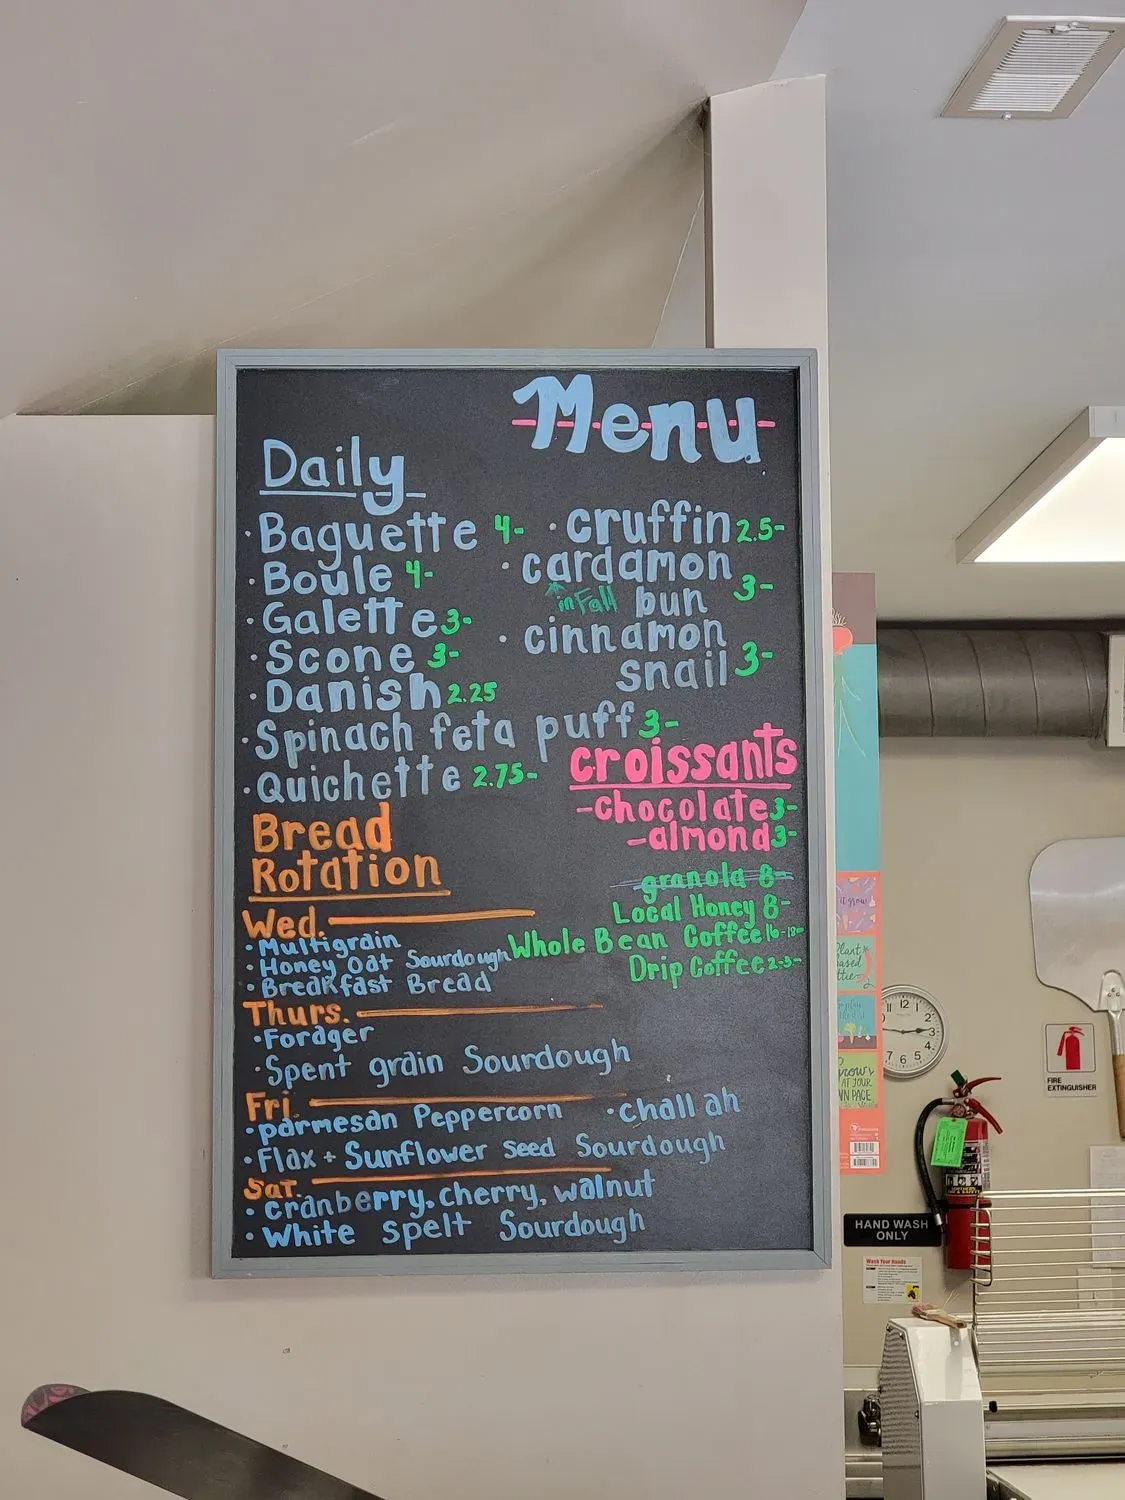 Menu
Daily
· Baguette 4-
· Boule 4-
· Galette 3-
· Scone 3-
· Danish 2.25
· Spinach feta puff 3-
· Quichette 2.75-
· cruffin 2.5-
· cardamon
in Fall bun 3-
· cinnamon
snail 3-
croissants
- chocolate 3-
- almond 3-
granola 8-
Local Honey 8-
Whole Bean Coffee 16-18-
Drip Coffee 2-3-
Bread
Rotation
Wed.
· Multigrain
· Honey Oat Sourdough
· Breakfast Bread
Thurs.
· Forager
· Spent grain Sourdough
Fri.
· parmesan Peppercorn · challah
· Flax + Sunflower seed Sourdough
Sat.
· cranberry, cherry, walnut
· White spelt Sourdough
it grow
Plant
based
GROW
AT YOUR
WN PACE
12
1
2
3
4
5
6
7
9
11
FIRE
EXTINGUISHER
HAND WASH
ONLY
Wash Your Hands